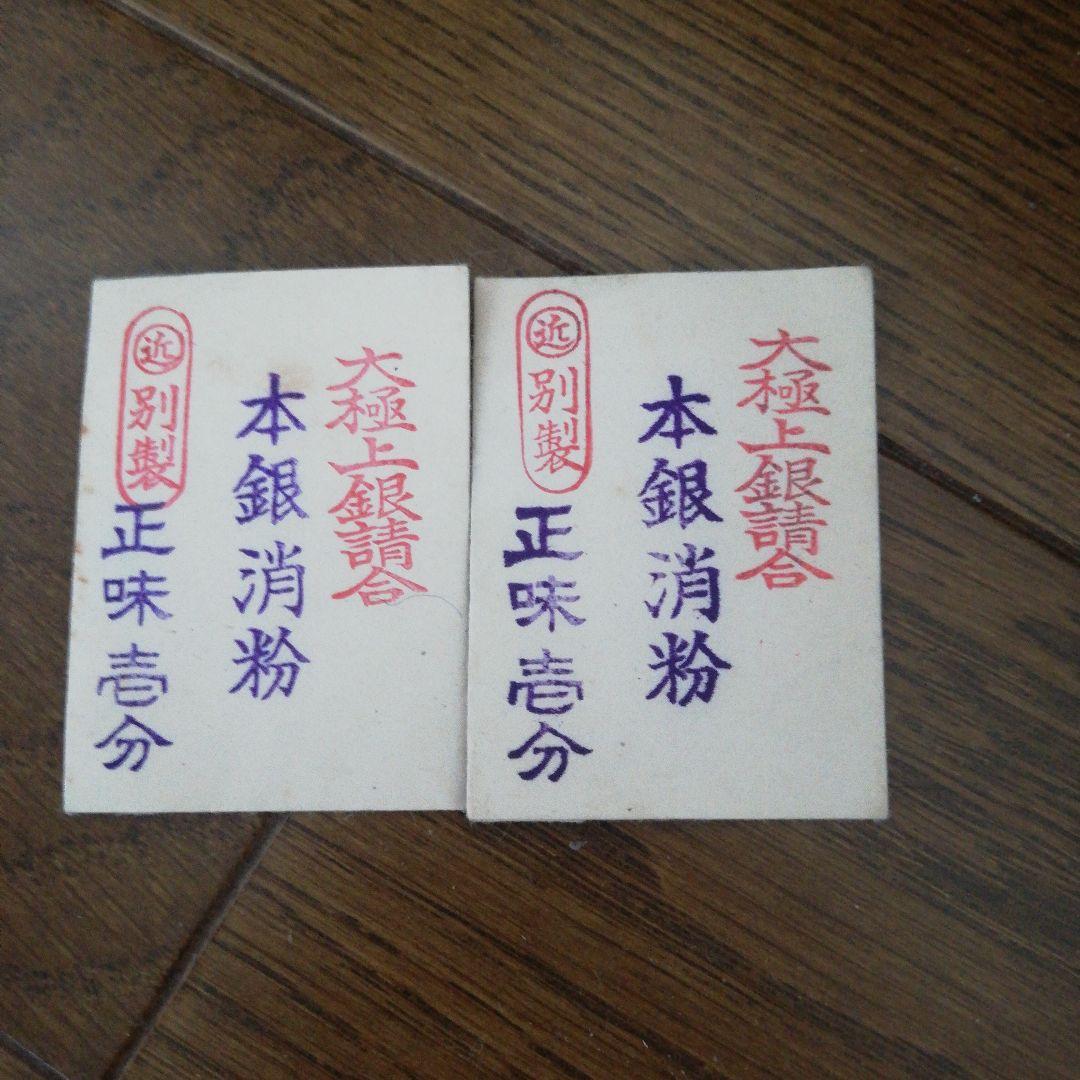 大極上銀請合
本銀消粉
近 別製
正味壱分
大極上銀請合
本銀消粉
近 別製
正味壱分